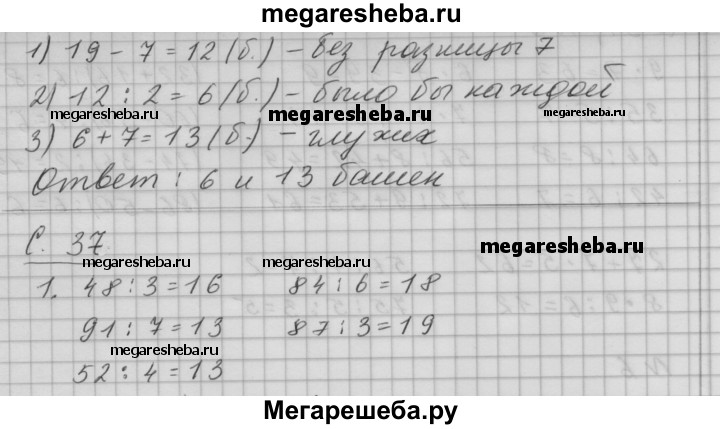 megaresheba.ru
1) 19 - 7 = 12 (б.) - без разницы 7
2) 12 : 2 = 6 (б.) - было бы каждой
megaresheba.ru megaresheba.ru megaresheba.ru
3) 6 + 7 = 13 (б.) - глухих
Ответ : 6 и 13 башен
С. 37.
megaresheba.ru megaresheba.ru megaresheba.ru
1. 48 : 3 = 16 84 : 6 = 18
91 : 7 = 13 87 : 3 = 19
megaresheba.ru
52 : 4 = 13
Мегарешеба.ру